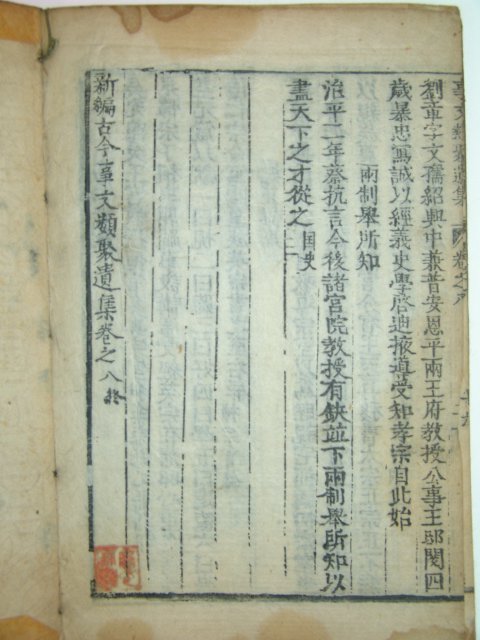 事文類聚遺集 卷之八
劉章字文孺紹興中兼普安恩平兩王府教授公事王邸閱四
歲暴忠寫誠以經義史學啓迪掖道受知孝宗自此始
兩制舉所知
治平二年蔡抗言今後諸宮院教授有缺並下兩制舉所知以
盡天下之才從之 國史
新編古今事文類聚遺集卷之八終